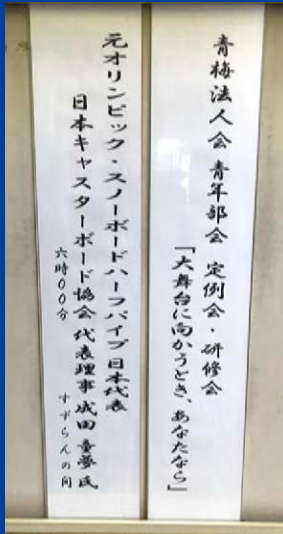 青梅法人会 青年部会 定例会・研修会
「大舞台に向かうとき、あなたなら」
元オリンピック・スノーボードハーフパイプ日本代表
日本キャスターボード協会 代表理事 成田 童夢 氏
六時00分 すずらんの間